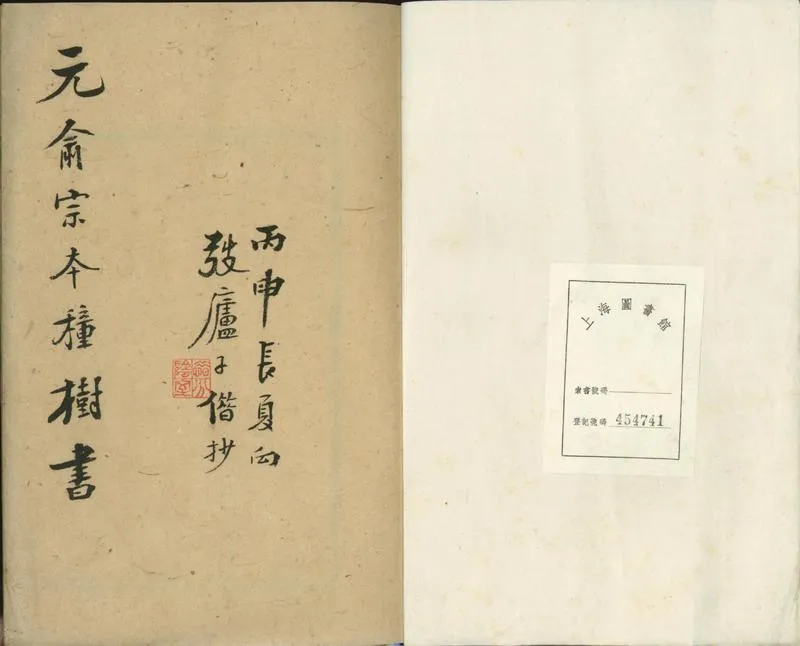 元俞宗本種樹書
丙申長夏向
弢廬子借抄
上海圖書館
索書號碼
登記號碼 454741